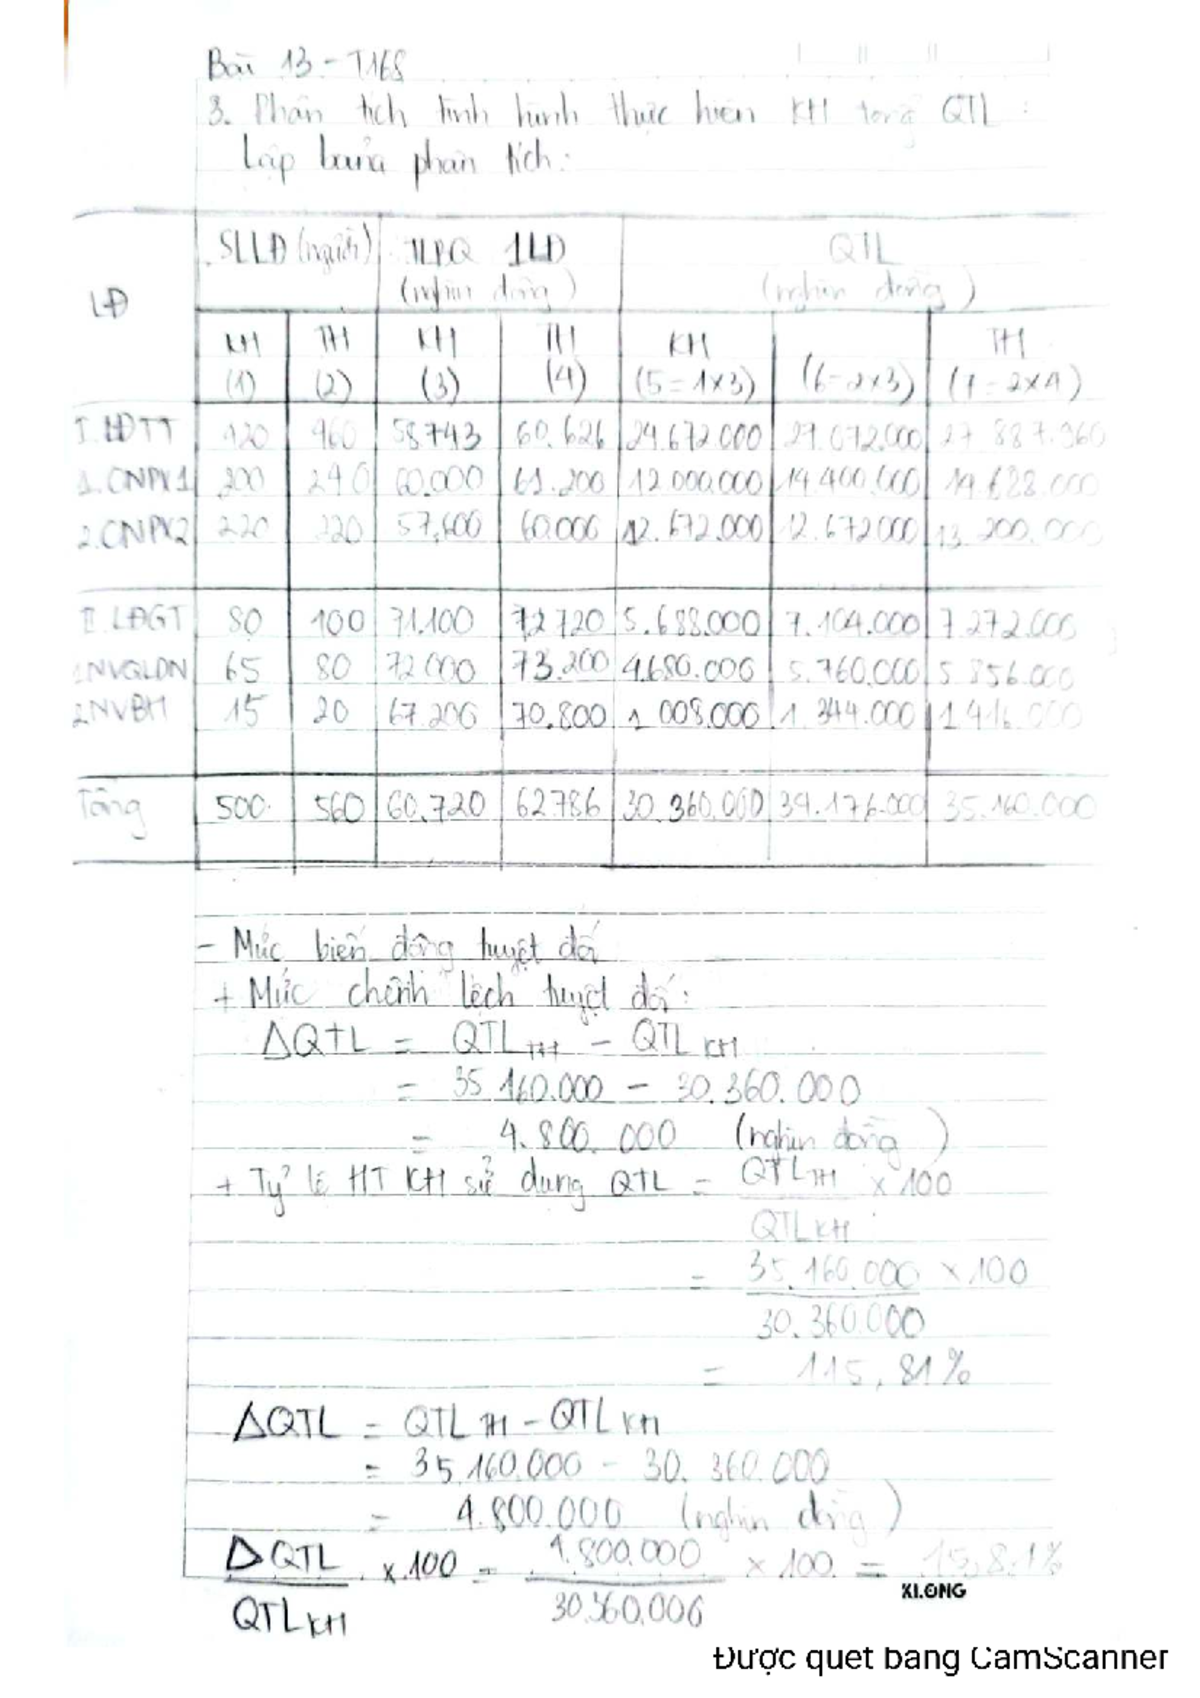 Bài 13 - T168
3. Phân tích tình hình thực hiện KH tổng QTL:
Lập bảng phân tích:
LĐ SLLĐ (người) TLBQ 1LĐ (nghìn đồng) QTL (nghìn đồng)
KH (1) TH (2) KH (3) TH (4) KH (5=1x3) (6=2x3) TH (7=2x4)
I. LĐTT 420 460 58.743 60.626 24.672.000 27.072.000 27 887.960
1. CNPX1 200 240 60.000 61.200 12.000.000 14.400.000 14.688.000
2. CNPX2 220 220 57,600 60.000 12.672.000 12.672.000 13.200.000
II. LĐGT 80 100 71.100 72.720 5.688.000 7.104.000 7.272.000
1NVQLDN 65 80 72.000 73.200 4.680.000 5.760.000 5.856.000
2NVBH 15 20 67.200 70.800 1 008.000 1 344.000 1 416.000
Tổng 500 560 60.720 62.786 30.360.000 34.176.000 35.160.000
- Mức biến động tuyệt đối
+ Mức chênh lệch tuyệt đối:
ΔQTL = QTL TH - QTL KH
= 35 160.000 - 30.360.000
= 4.800.000 (nghìn đồng)
+ Tỷ lệ HT KH sử dụng QTL = QTL TH x 100
QTL KH
= 35.160.000 x 100
30.360.000
= 115,81%
ΔQTL = QTL TH - QTL KH
= 35.160.000 - 30.360.000
= 4.800.000 (nghìn đồng)
ΔQTL x 100 = 4.800.000 x 100 = 15,81%
QTL KH 30.360.000
KLONG
Được quét bằng CamScanner